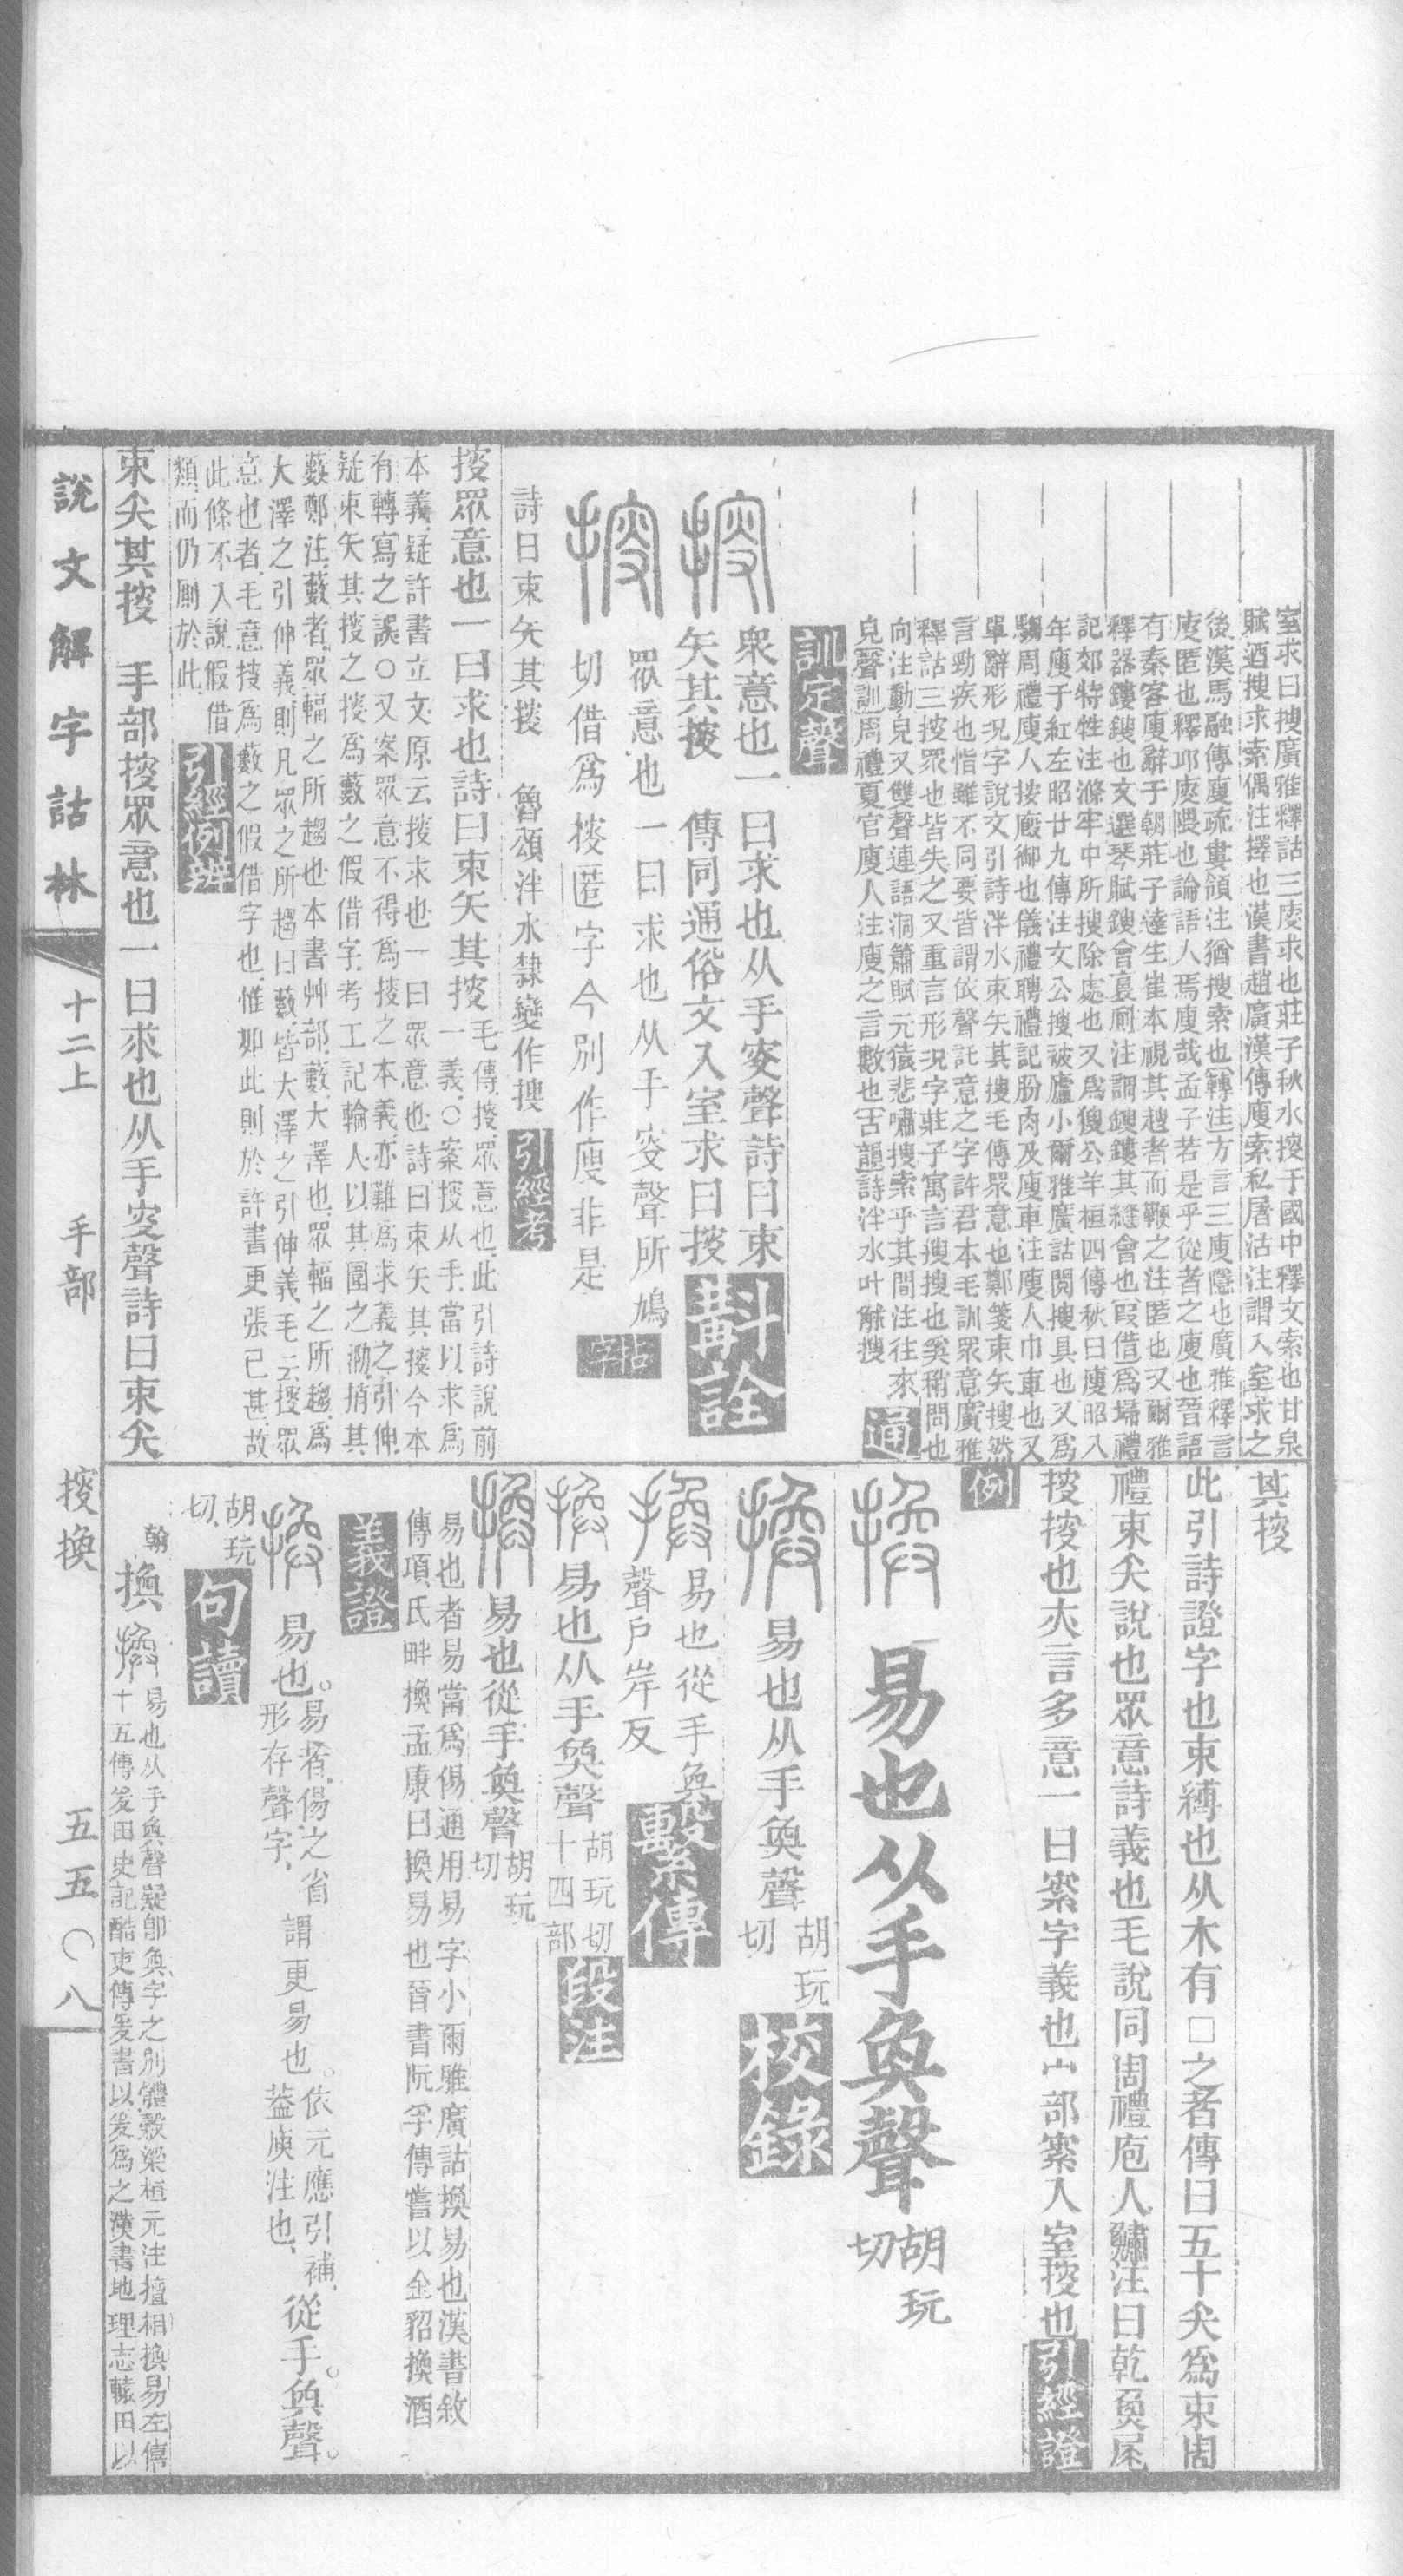 室求曰搜廣雅釋詁三廋求也莊子秋水挼于國中釋文索也甘泉
賦迺搜求索偶注擇也漢書趙廣漢傳廋索私屠沽注謂入室求之
後漢馬融傳廋疏婁領注猶搜索也轉注方言三廋隱也廣雅釋言
廋匿也釋邱廋隈也論語人焉廋哉孟子若是乎從者之廋也晉語
有秦客廋辭于朝莊子達生崔本視其趨者而鞭之注匿也又爾雅
釋器鏤鎪也文選琴賦鎪會裛廁注謂鎪鏤其縫會也叚借爲埽禮
記郊特牲注滌牢中所搜除處也又爲獀公羊桓四傳秋曰廋昭八
年廋于紅左昭廿九傳注文公搜被廬小爾雅廣詁閱搜具也又爲
騶周禮廋人按廄御也儀禮聘禮記肦肉及廋車注廋人巾車也又
單辭形況字說文引詩泮水束矢其搜毛傳眾意也鄭箋束矢搜然
言勁疾也恉雖不同要皆謂依聲託意之字許君本毛訓眾意廣雅
釋詁三挼眾也皆失之又重言形況字莊子寓言搜搜也奚稍問也
向注動皃又雙聲連語洞簫賦元猿悲嘯搜索乎其間注往來
皃聲訓周禮夏官廋人注廋之言數也古韻詩泮水叶觩搜
通
訓定聲
衆意也一曰求也从手叜聲詩曰束
矢其挼 傳同通俗文入室求曰挼
斠詮
眾意也一曰求也从手叜聲所鳩
切借爲挼匿字今別作廋非是
古字
詩曰束矢其挼 魯頌泮水隸變作搜
引經考
挼眾意也一曰求也詩曰束矢其挼
毛傳挼眾意也此引詩說前
一義○案挼从手當以求爲
本義疑許書立文原云挼求也一曰眾意也詩曰束矢其挼今本
有轉寫之誤○又案眾意不得爲挼之本義亦難爲求義之引伸
疑束矢其挼之挼爲藪之假借字考工記輪人以其圍之泐捎其
藪鄭注藪者眾輻之所趨也本書艸部藪大澤也眾輻之所趨爲
大澤之引伸義則凡眾之所趨曰藪皆大澤之引伸義毛云挼眾
意也者毛意挼爲藪之假借字也惟如此則於許書更張已甚故
此條不入說假借
類而仍廁於此
引經例辨
束矢其挼 手部挼眾意也一曰求也从手叜聲詩曰束矢
其挼
此引詩證字也束縛也从木有□之者傳曰五十矢爲束周
禮束矢說也眾意詩義也毛說同周禮庖人鱐注曰乾魚尾
挼挼也亦言多意一曰索字義也宀部索入室挼也
引經證
例
易也从手奐聲胡玩切
易也从手奐聲胡玩切
校錄
易也從手奐
聲戶岸反
繫傳
易也从手奐聲胡玩切十四部
段注
易也從手奐聲胡玩切
易也者易當爲傷通用易字小爾雅廣詁換易也漢書敘
傳項氏畔換孟康曰換易也晉書阮孚傳嘗以金貂換酒
義證
易也。易者傷之省形存聲字 謂更易也。依元應引補葢庾注也 從手。奐聲。
胡玩切
句讀
翰
換 易也从手奐聲疑卽奐字之別體穀梁桓元注擅相換易左僖
十五傳爰田史記酷吏傳爰書以爰爲之漢書地理志轅田以
說文解字詁林 十二上 手部 挼換 五五〇八